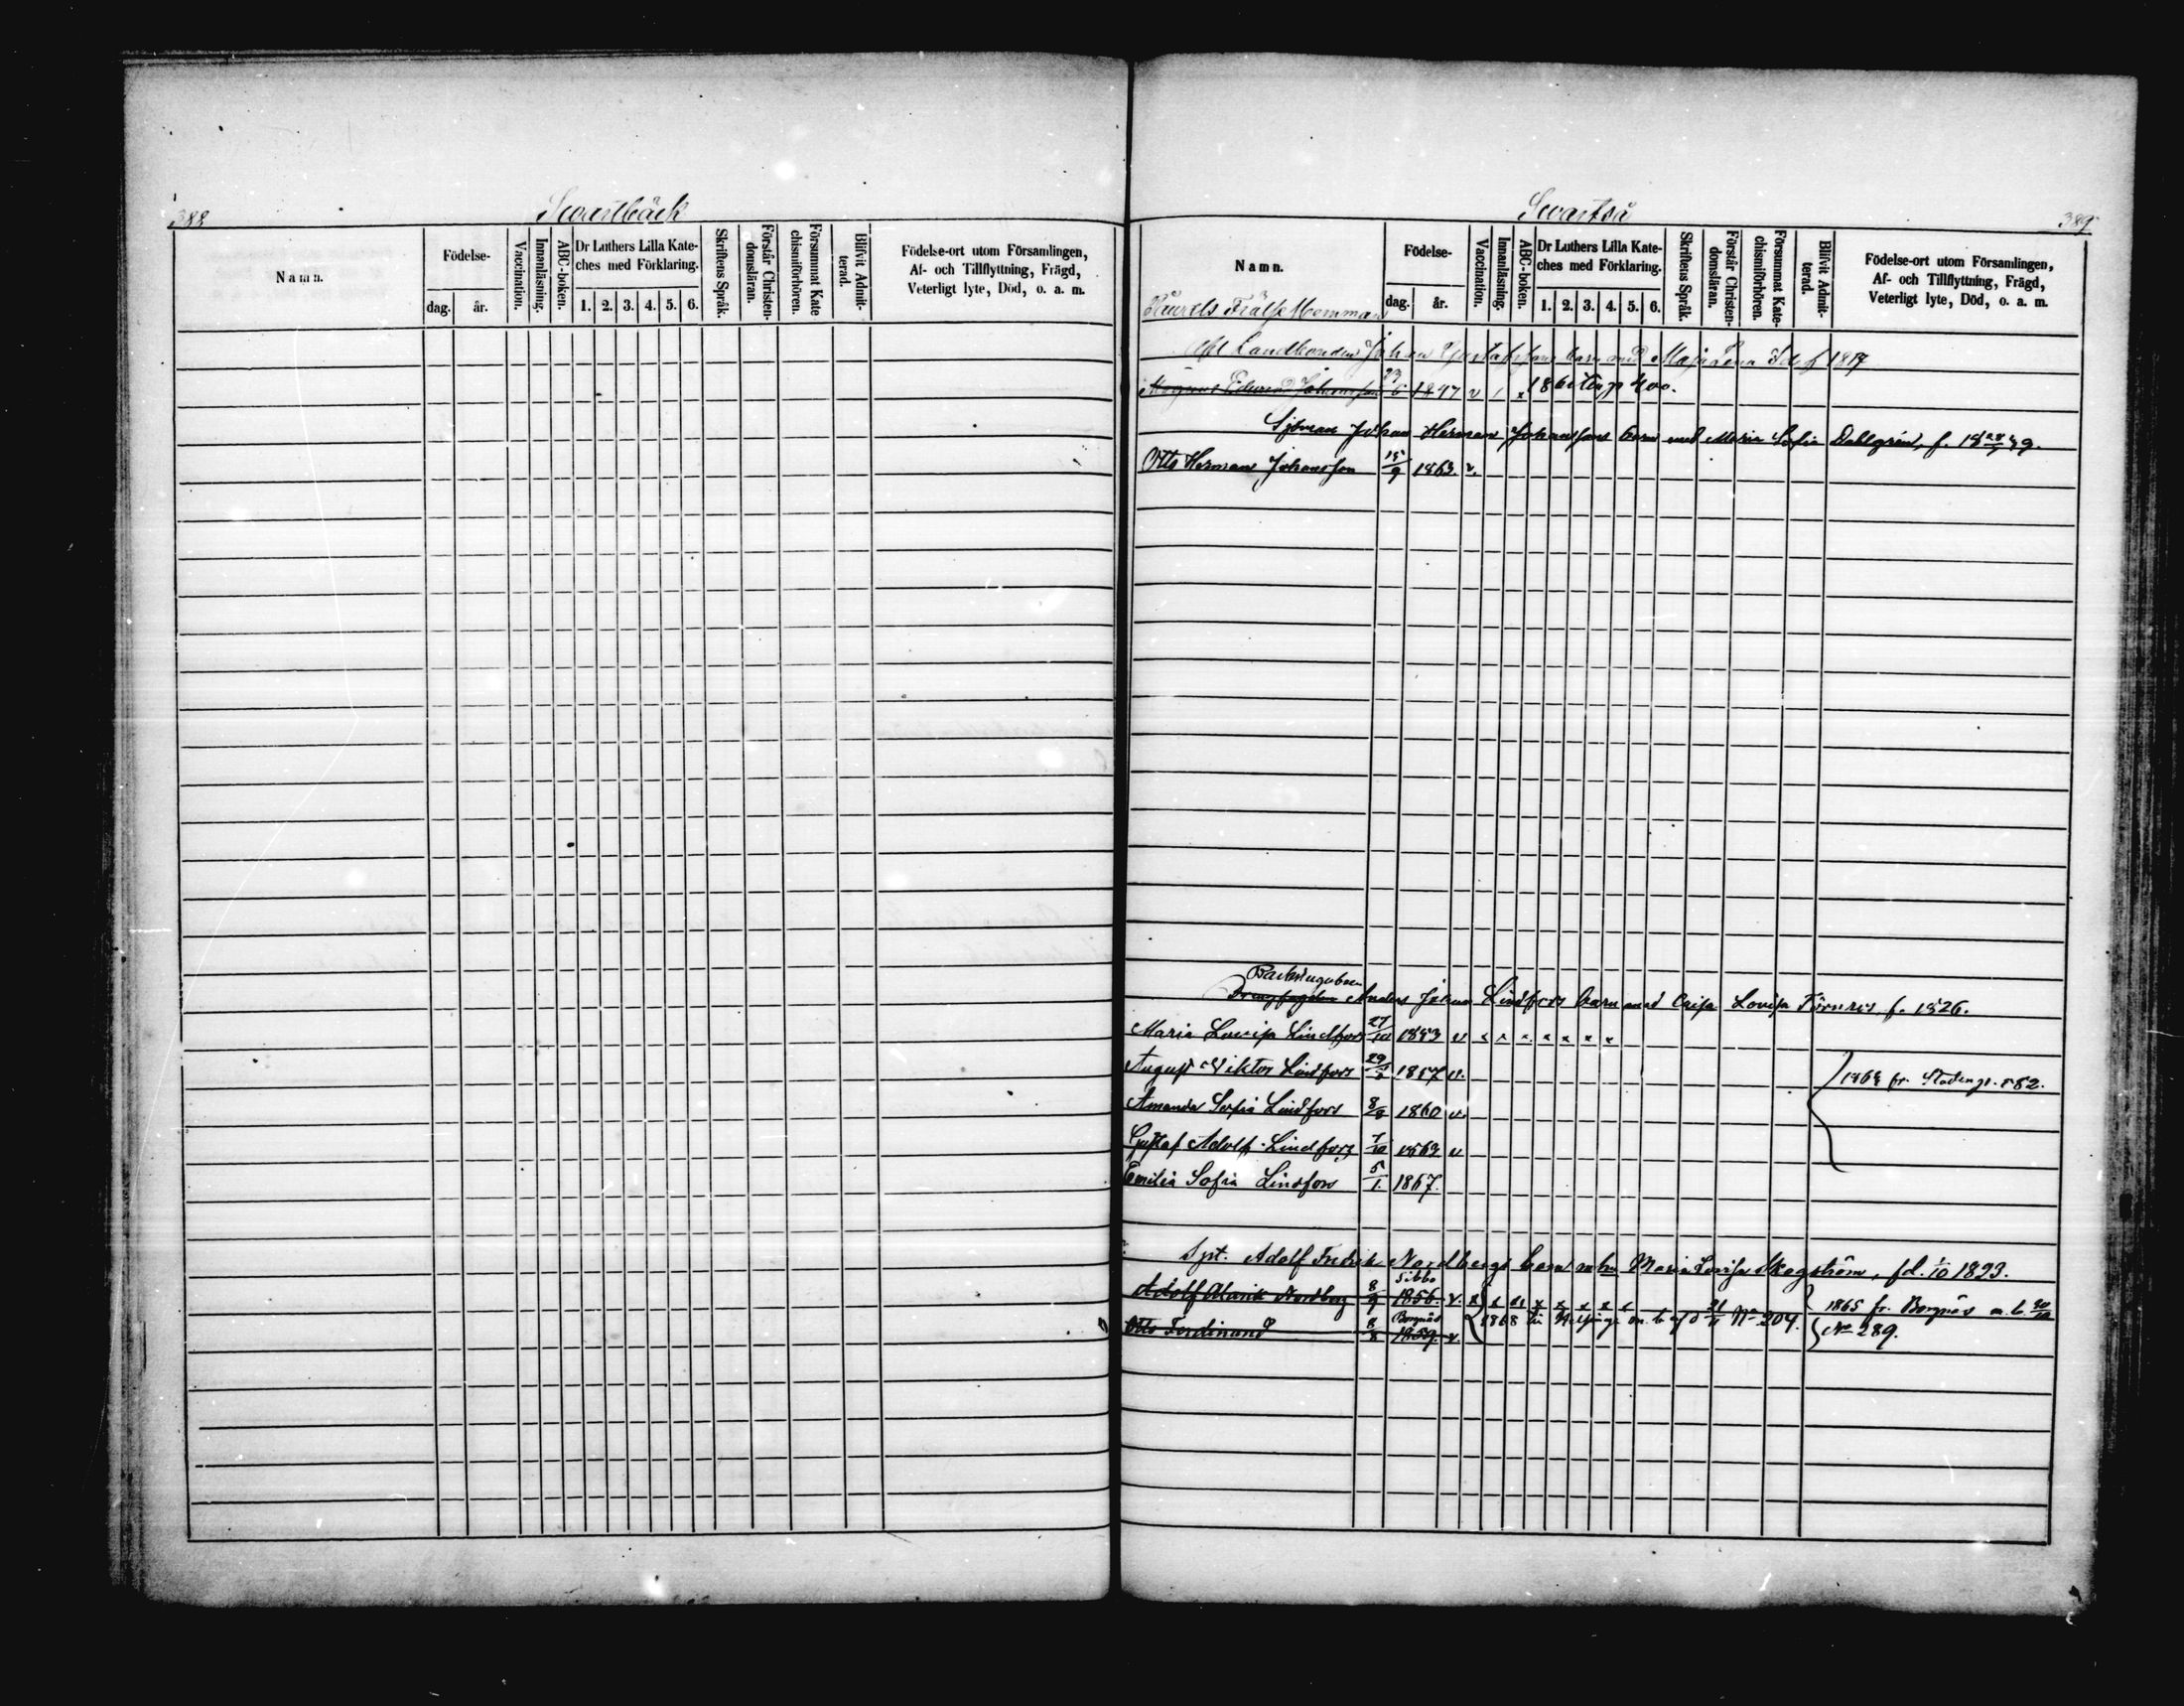 388
Svartbäck
Namn.
Födelse-
dag.
år.
Vaccination.
Innanläsning.
ABC-boken.
Dr Luthers Lilla Kate-
ches med Förklaring.
1. 2. 3. 4. 5. 6.
Skriftens Språk.
Förstår Christen-
domsläran.
Försummat Kate
chismiförhören.
Blifvit Admit-
terad.
Födelse-ort utom Församlingen,
Af- och Tillflyttning, Frägd,
Veterligt lyte, Död, o. a. m.
389
Svartså
Namn.
Födelse-
dag.
år.
Vaccination.
Innanläsning.
ABC-boken.
Dr Luthers Lilla Kate-
ches med Förklaring.
1. 2. 3. 4. 5. 6.
Skriftens Språk.
Förstår Christen-
domsläran.
Försummat Kate-
chismiförhören.
Blifvit Admit-
terad.
Födelse-ort utom Församlingen,
Af- och Tillflyttning, Frägd,
Veterligt lyte, Död, o. a. m.
Frälse Hemman
Landbonden Johan Gustafssons barn med Maja Lena f 1817
Magnus Edvard Johansson 23/6 1847 v 400.
Sjöman Johan Herman Johanssons barn med Maria Sofia Dahlgrén, f.
Otto Herman Johansson 15/9 1863. v.
Anders Johan Lindfors barn med Cajsa Lovisa Törnros f. 1826.
Maria Lovisa Lindfors 27/10 1853 v x x x x x x x
August Viktor Lindfors 1857 v.
Amanda Sofia Lindfors 8/8 1860 v.
Gustaf Adolf Lindfors 7/10 1863 v
Emilia Sofia Lindfors 5/1. 1867.
Adolf Fredrik Nordbergs barn m. Maria Lovisa Skogström, fd. 1/10 1823.
Adolf Alarik Nordberg 8/9 Sibbo 1856. v. x x x x x x x
1865 fr. Borgnäs
Otto Ferdinand Borgnäs 1859. v. 1868 No 209.
No 289.